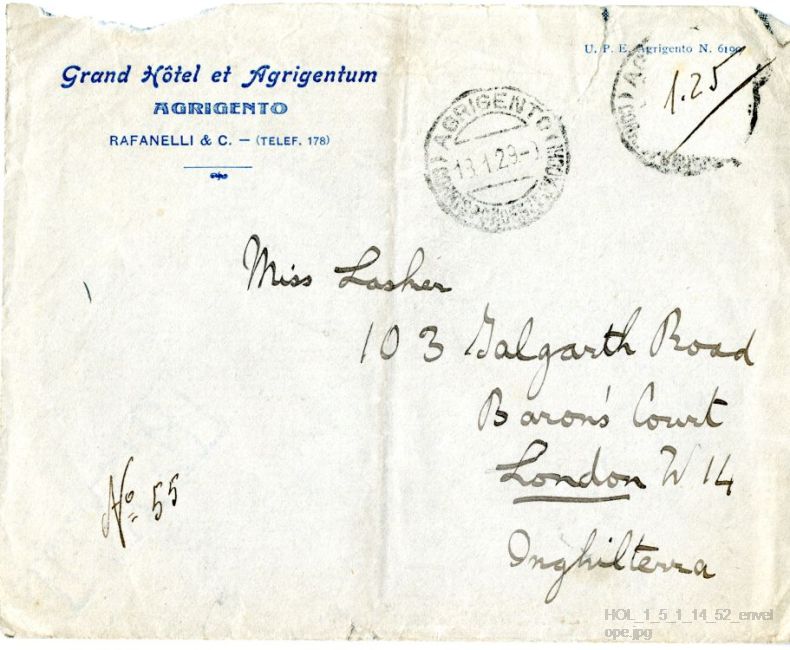 Grand Hôtel et Agrigentum
AGRIGENTO
RAFANELLI & C. — (TELEF. 178)
U. P. E. Agrigento N. 6190
1.25
AGRIGENTO
13.1.29
Miss Lasher
103 Talgarth Road
Baron's Court
London W 14
Inghilterra
No. 55
HOL_1_5_1_14_52_envel
ope.jpg